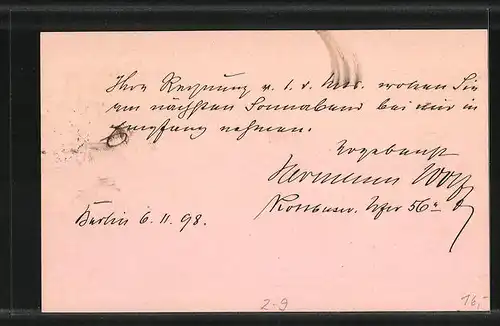 Ihre Rechnung v. 1. d. Mts. wollen Sie
am nächsten Sonnabend bei mir in
Empfang nehmen.
Ergebenst
Hermann Wolff
Kottbuser Ufer 56a
Berlin 6.11.98.
2-9
16,-